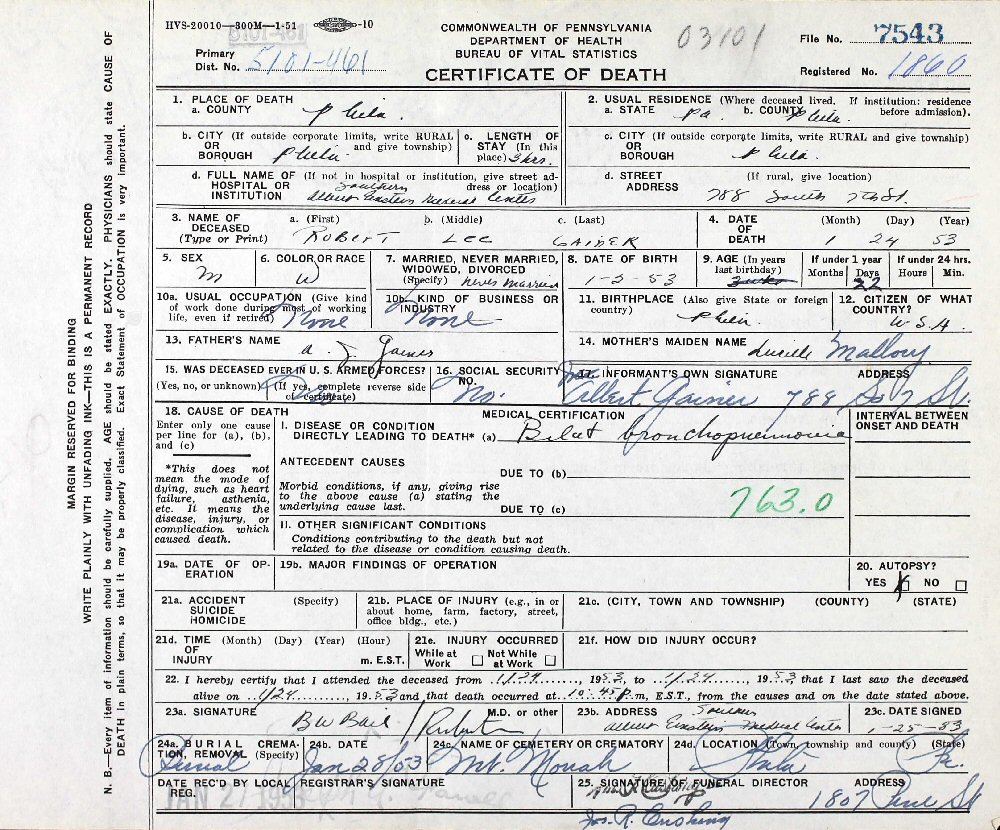 HVS-20010—300M—1-51 -10
5101-461
Primary
Dist. No. 5101-461
COMMONWEALTH OF PENNSYLVANIA
DEPARTMENT OF HEALTH
BUREAU OF VITAL STATISTICS
CERTIFICATE OF DEATH
03101
File No. 7543
Registered No. 1860
1. PLACE OF DEATH
a. COUNTY Phila.
2. USUAL RESIDENCE (Where deceased lived. If institution: residence before admission).
a. STATE Pa. b. COUNTY Phila.
b. CITY (If outside corporate limits, write RURAL and give township)
OR
BOROUGH Phila.
c. LENGTH OF STAY (In this place) 3 hrs.
c. CITY (If outside corporate limits, write RURAL and give township)
OR
BOROUGH Phila.
d. FULL NAME OF (If not in hospital or institution, give street address or location)
HOSPITAL OR
INSTITUTION Southern
Albert Einstein Medical Center
d. STREET ADDRESS (If rural, give location)
788 South 7th St.
3. NAME OF DECEASED
(Type or Print)
a. (First) b. (Middle) c. (Last)
ROBERT LEE GAINER
4. DATE OF DEATH (Month) (Day) (Year)
1 24 53
5. SEX
M
6. COLOR OR RACE
W
7. MARRIED, NEVER MARRIED, WIDOWED, DIVORCED
(Specify) never married
8. DATE OF BIRTH
1-2-53
9. AGE (In years last birthday)
If under 1 year
Months Days
22
If under 24 hrs.
Hours Min.
10a. USUAL OCCUPATION (Give kind of work done during most of working life, even if retired) None
10b. KIND OF BUSINESS OR INDUSTRY
None
11. BIRTHPLACE (Also give State or foreign country)
Phila.
12. CITIZEN OF WHAT COUNTRY?
U.S.A.
13. FATHER'S NAME
A. J. Gainer
14. MOTHER'S MAIDEN NAME
Lucille Mallory
15. WAS DECEASED EVER IN U. S. ARMED FORCES?
(Yes, no, or unknown) (If yes, complete reverse side of certificate)
No
16. SOCIAL SECURITY NO.
No.
17. INFORMANT'S OWN SIGNATURE ADDRESS
Albert Gainer 788 So 7 St.
18. CAUSE OF DEATH
Enter only one cause per line for (a), (b), and (c)
MEDICAL CERTIFICATION
INTERVAL BETWEEN ONSET AND DEATH
I. DISEASE OR CONDITION
DIRECTLY LEADING TO DEATH* (a) Bilat bronchopneumonia
*This does not mean the mode of dying, such as heart failure, asthenia, etc. It means the disease, injury, or complication which caused death.
ANTECEDENT CAUSES
DUE TO (b)
Morbid conditions, if any, giving rise to the above cause (a) stating the underlying cause last.
DUE TO (c)
763.0
II. OTHER SIGNIFICANT CONDITIONS
Conditions contributing to the death but not related to the disease or condition causing death.
19a. DATE OF OPERATION
19b. MAJOR FINDINGS OF OPERATION
20. AUTOPSY?
YES NO
21a. ACCIDENT (Specify)
SUICIDE
HOMICIDE
21b. PLACE OF INJURY (e.g., in or about home, farm, factory, street, office bldg., etc.)
21c. (CITY, TOWN AND TOWNSHIP) (COUNTY) (STATE)
21d. TIME (Month) (Day) (Year) (Hour)
OF
INJURY m. E.S.T.
21e. INJURY OCCURRED
While at Work Not While at Work
21f. HOW DID INJURY OCCUR?
22. I hereby certify that I attended the deceased from 1/24, 1953, to 1/24, 1953, that I last saw the deceased
alive on 1/24, 1953 and that death occurred at 10:45 P.m, E.S.T., from the causes and on the date stated above.
23a. SIGNATURE M.D. or other
23b. ADDRESS Southern
Albert Einstein Medical Center
23c. DATE SIGNED
1-25-53
24a. BURIAL CREMATION, REMOVAL (Specify)
Burial
24b. DATE
Jan 28/53
24c. NAME OF CEMETERY OR CREMATORY
Mt. Moriah
24d. LOCATION (Town, township and county) (State)
Phila Pa.
DATE REC'D BY LOCAL REG.
JAN 27 1953
REGISTRAR'S SIGNATURE
25. SIGNATURE OF FUNERAL DIRECTOR ADDRESS
Jos. R. Cushing
MARGIN RESERVED FOR BINDING
WRITE PLAINLY WITH UNFADING INK—THIS IS A PERMANENT RECORD
N. B.—Every item of information should be carefully supplied. AGE should be stated EXACTLY. PHYSICIANS should state CAUSE OF
DEATH in plain terms, so that it may be properly classified. Exact Statement of OCCUPATION is very important.